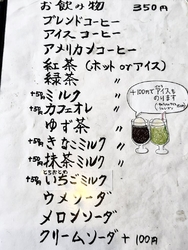 お飲の物 350円
ブレンドコーヒー
アイスコーヒー
アメリカンコーヒー
紅茶(ホットorアイス)
緑茶 〃
+50円ミルク 〃
+50円カフェオレ
ゆず茶 〃
+50円きなこミルク 〃
+50円抹茶ミルク 〃
とちおとめ
+50円いちごミルク
ウメソーダ
メロンソーダ
クリームソーダ +100円
+100円で
アイスも
のります